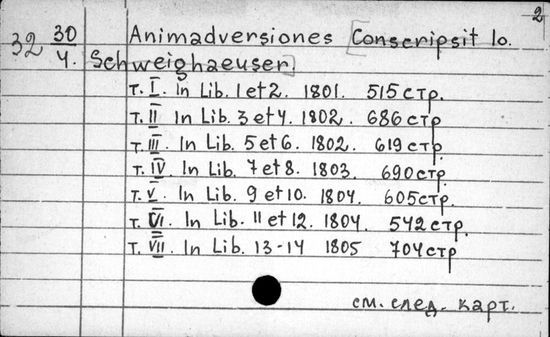 2
32 30/4. Animadversiones [Conscripsit Io.
Schweighaeuser]
т. I. In Lib. 1 et 2. 1801. 515 стр.
т. II In Lib. 3 et 4. 1802. 686 стр
т. III. In Lib. 5 et 6. 1802. 619 стр
т. IV. In Lib. 7 et 8. 1803. 690 стр
т. V. In Lib. 9 et 10. 1804. 605 стр
т. VI. In Lib. 11 et 12. 1804. 542 стр.
т. VII. In Lib. 13-14 1805 704 стр
см. след. карт.